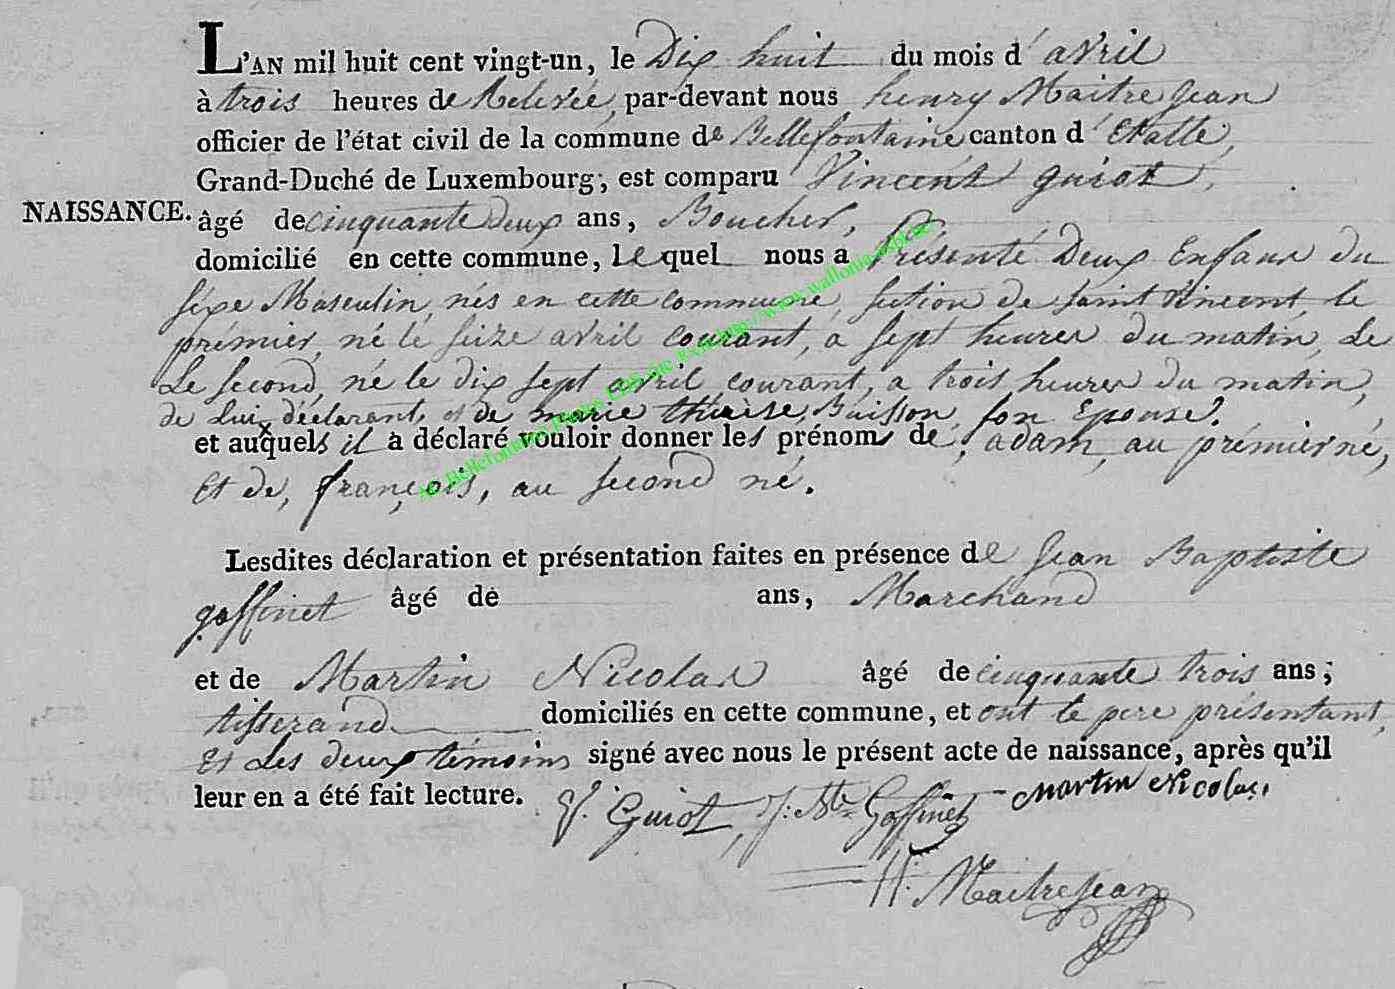 L'AN mil huit cent vingt-un, le Dix huit du mois d'avril
à trois heures de Relevée, par-devant nous henry Maitrejean
officier de l'état civil de la commune de Bellefontaine canton d'Etalle,
Grand-Duché de Luxembourg, est comparu Vincent guiot,
NAISSANCE. âgé de cinquante deux ans, Boucher,
domicilié en cette commune, lequel nous a Présenté Deux Enfans du
séxe Masculin, nés en cette commune, section de saint Vincent, le
prémier, né le seize avril courant, a sept heures du matin, Le
Le second, né le dix sept avril courant, a trois heures du matin,
de Lui déclarant, et de marie thérèse Buisson, son Epouse.
et auxquels il a déclaré vouloir donner les prénoms de, adam, au prémier né,
Et de, françois, au second né.
Lesdites déclaration et présentation faites en présence de Jean Baptiste
goffinet âgé de ans, Marchand
et de Martin Nicolas âgé de cinquante trois ans;
tisserand domiciliés en cette commune, et ont le pere présentant,
Et Les deux témoins signé avec nous le présent acte de naissance, après qu'il
leur en a été fait lecture. V. Guiot, J. Bte Goffinet martin Nicolas
H. Maitrejean